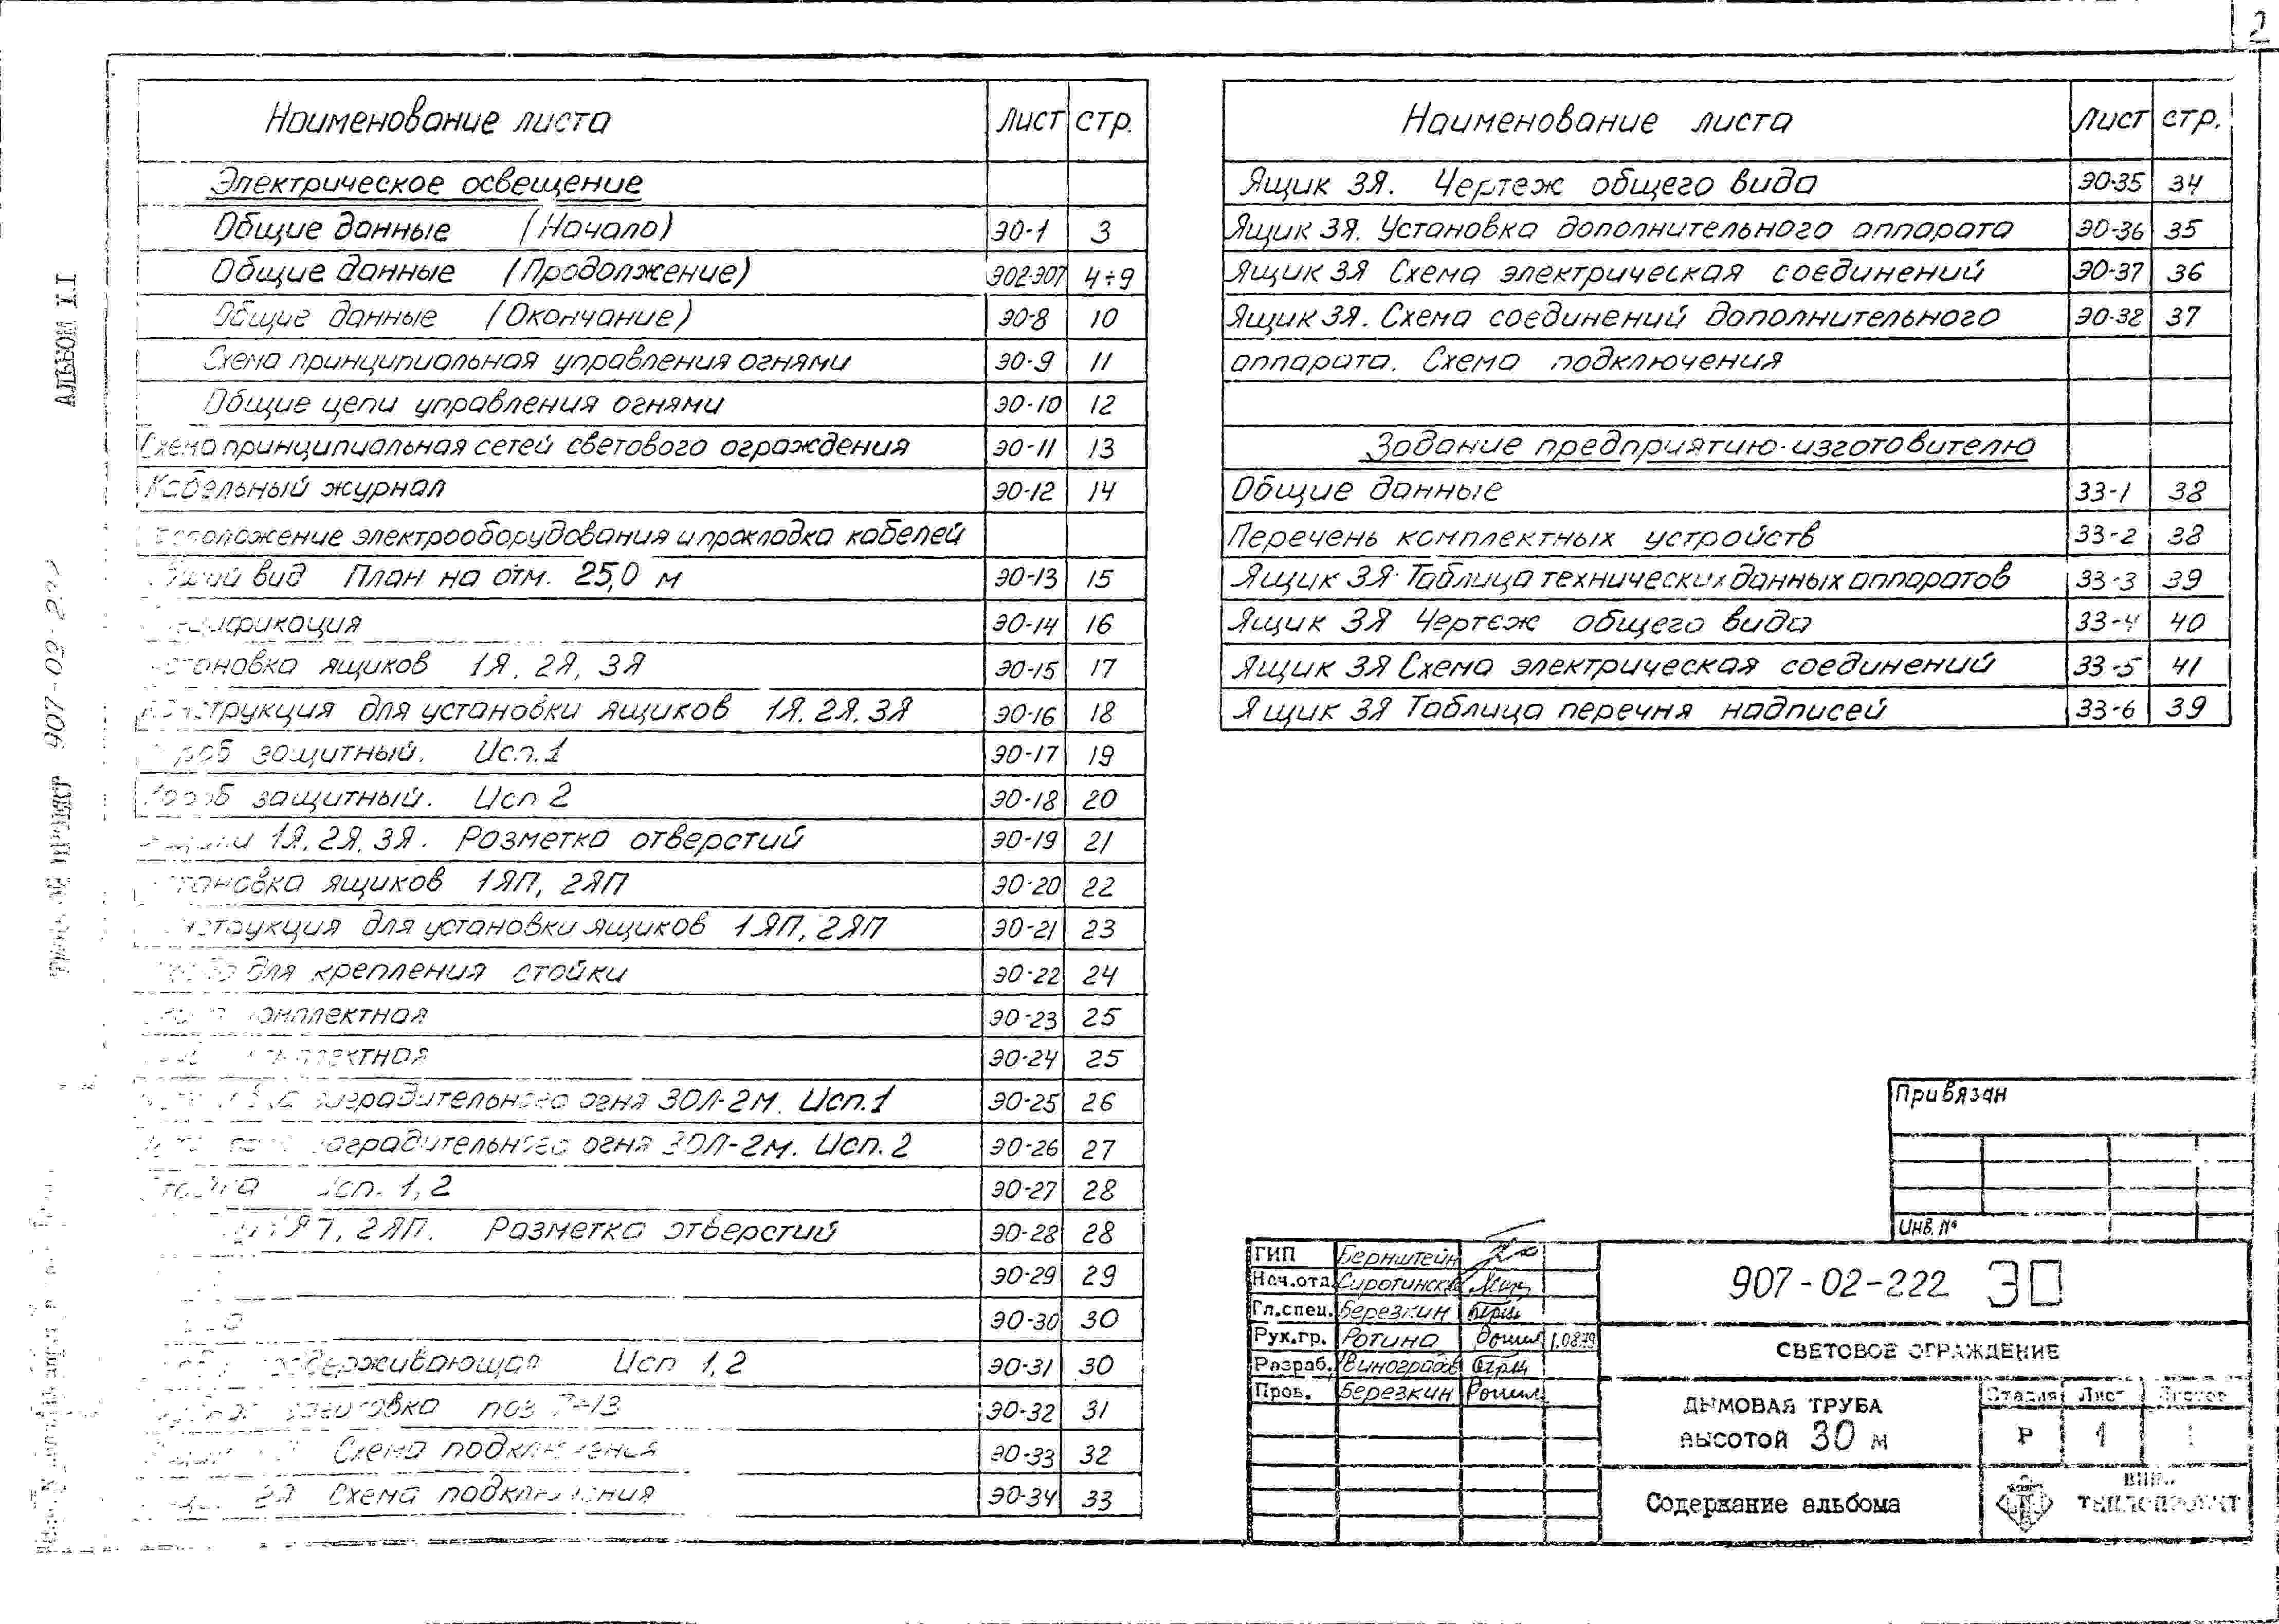 2
АЛЬБОМ II
907-02-222
Наименование листа Лист стр.
Электрическое освещение
Общие данные (Начало) ЭО-1 3
Общие данные (Продолжение) ЭО2-ЭО7 4÷9
Общие данные (Окончание) ЭО-8 10
Схема принципиальная управления огнями ЭО-9 11
Общие цепи управления огнями ЭО-10 12
Схема принципиальная сетей светового ограждения ЭО-11 13
Кабельный журнал ЭО-12 14
Расположение электрооборудования и прокладка кабелей
Общий вид План на отм. 25,0 м ЭО-13 15
Спецификация ЭО-14 16
Установка ящиков 1Я, 2Я, 3Я ЭО-15 17
Конструкция для установки ящиков 1Я, 2Я, 3Я ЭО-16 18
Короб защитный. Исп.1 ЭО-17 19
Короб защитный. Исп 2 ЭО-18 20
Ящики 1Я, 2Я, 3Я. Разметка отверстий ЭО-19 21
Установка ящиков 1ЯП, 2ЯП ЭО-20 22
Конструкция для установки ящиков 1ЯП, 2ЯП ЭО-21 23
для крепления стойки ЭО-22 24
комплектная ЭО-23 25
комплектная ЭО-24 25
Установка заградительного огня ЗОЛ-2м. Исп.1 ЭО-25 26
Установка заградительного огня ЗОЛ-2м. Исп.2 ЭО-26 27
Стойка Исп. 1, 2 ЭО-27 28
1ЯП, 2ЯП. Разметка отверстий ЭО-28 28
ЭО-29 29
ЭО-30 30
поддерживающая Исп 1, 2 ЭО-31 30
заготовка поз 7-13 ЭО-32 31
Ящик Схема подключения ЭО-33 32
2Я Схема подключения ЭО-34 33
Наименование листа Лист стр.
Ящик 3Я. Чертеж общего вида ЭО-35 34
Ящик 3Я. Установка дополнительного аппарата ЭО-36 35
Ящик 3Я Схема электрическая соединений ЭО-37 36
Ящик 3Я. Схема соединений дополнительного ЭО-38 37
аппарата. Схема подключения
Задание предприятию-изготовителю
Общие данные ЗЗ-1 38
Перечень комплектных устройств ЗЗ-2 38
Ящик 3Я. Таблица технических данных аппаратов ЗЗ-3 39
Ящик 3Я Чертеж общего вида ЗЗ-4 40
Ящик 3Я Схема электрическая соединений ЗЗ-5 41
Ящик 3Я Таблица перечня надписей ЗЗ-6 39
Привязан
Инв. №
ГИП Бернштейн
Нач.отд. Сиротинский
Гл.спец. Березкин
Рук.гр. Ротина 1.08.79
Разраб. Виноградов
Пров. Березкин
907-02-222 ЭО
СВЕТОВОЕ ОГРАЖДЕНИЕ
ДЫМОВАЯ ТРУБА
ВЫСОТОЙ 30 м
Стадия Лист Листов
Р 1 1
Содержание альбома
ТЕПЛОПРОЕКТ